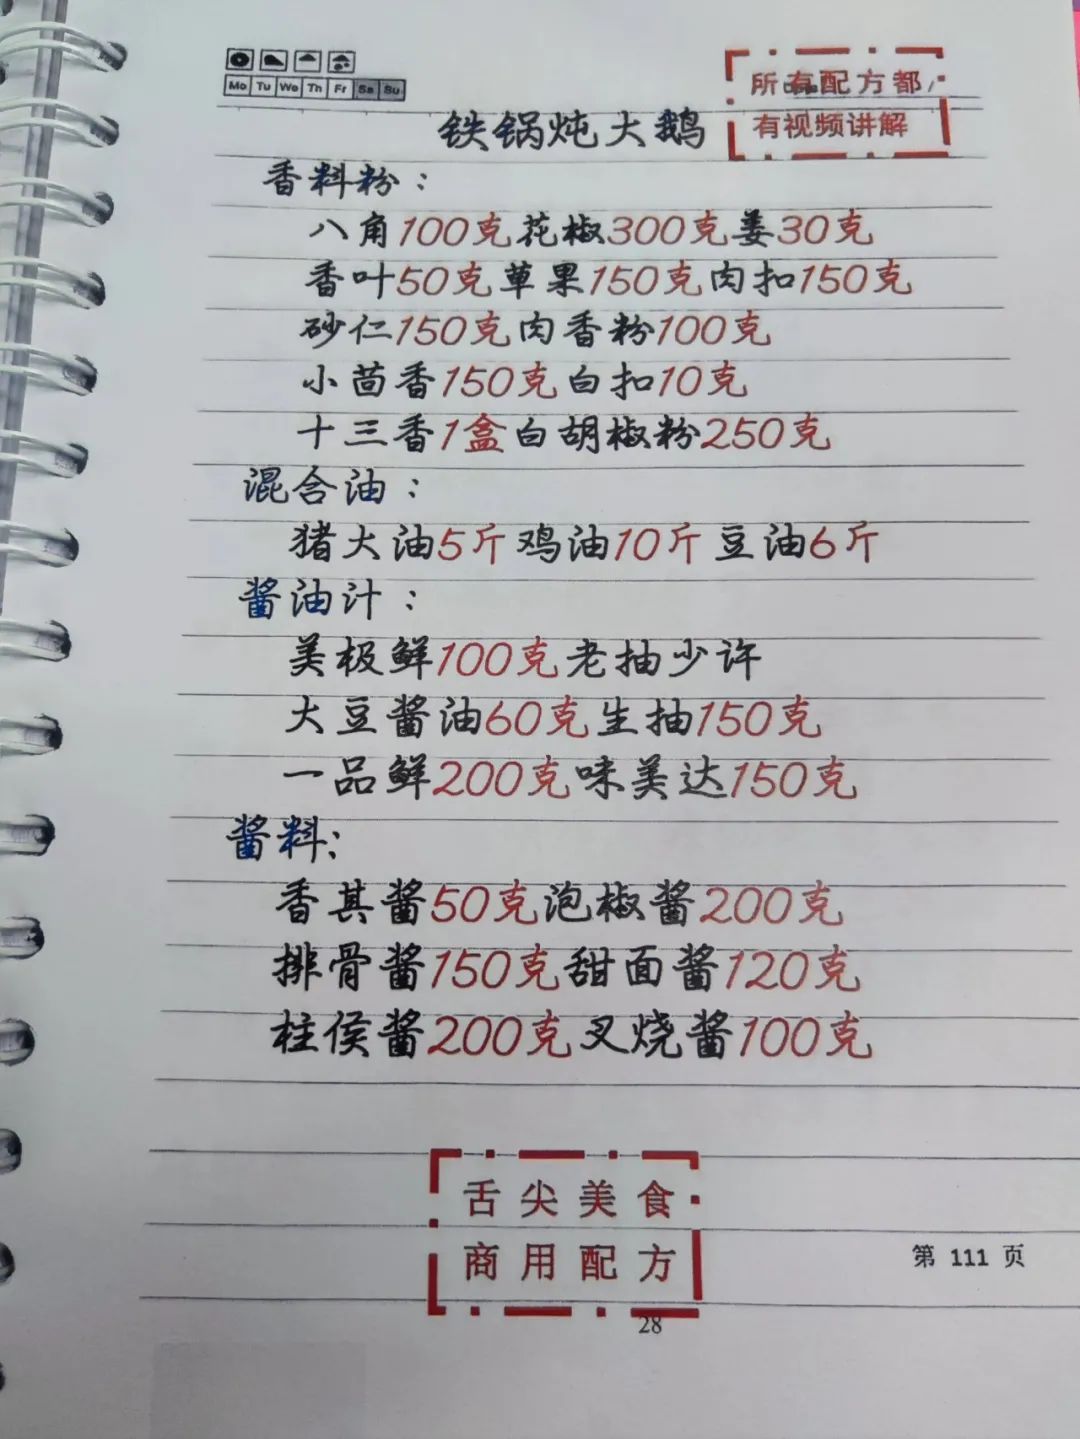 Mo Tu We Th Fr Sa Su
所有配方都
有视频讲解
铁锅炖大鹅
香料粉：
八角100克花椒300克姜30克
香叶50克草果150克肉扣150克
砂仁150克肉香粉100克
小茴香150克白扣10克
十三香1盒白胡椒粉250克
混合油：
猪大油5斤鸡油10斤豆油6斤
酱油汁：
美极鲜100克老抽少许
大豆酱油60克生抽150克
一品鲜200克味美达150克
酱料:
香其酱50克泡椒酱200克
排骨酱150克甜面酱120克
柱侯酱200克叉烧酱100克
舌尖美食
商用配方
第 111 页
28